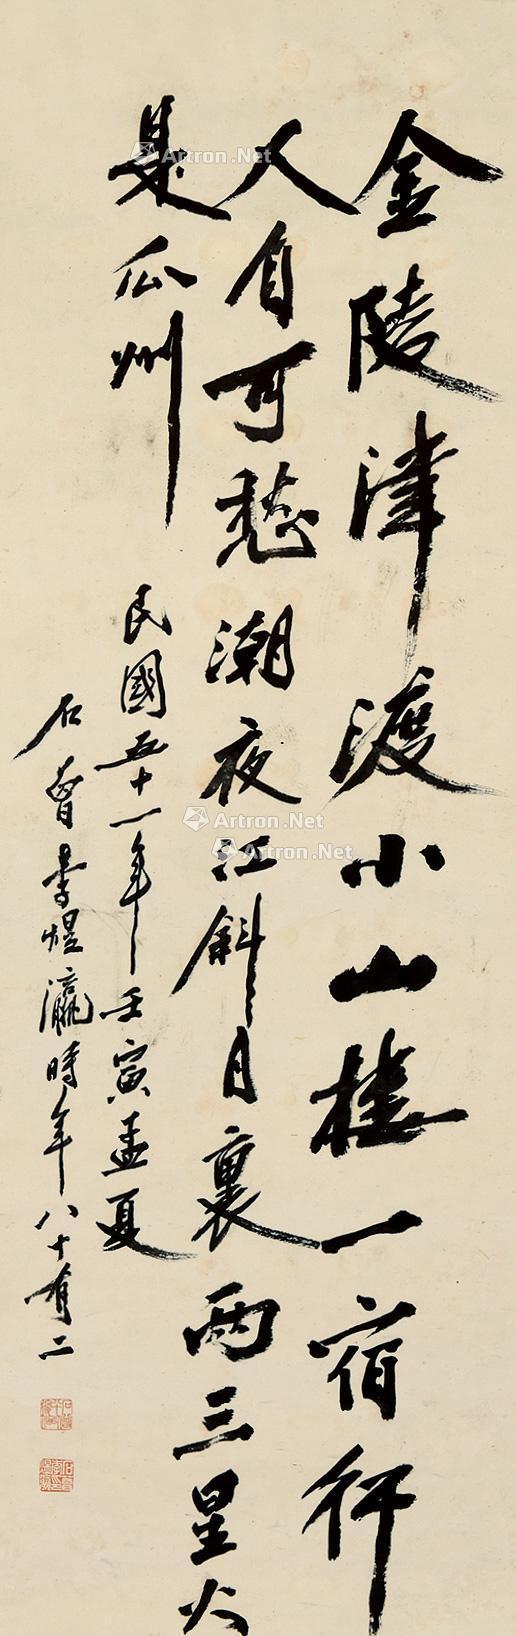 金陵津渡小山楼一宿行
人自可愁潮夜江斜月裏两三星火
是瓜州
民國五十一年壬寅孟夏
石曾李煜瀛時年八十有二
Artron.Net
Artron.Net
Artron.Net
Artron.Net